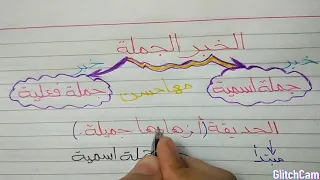 الخبر الجملة
خبر خبر
جملة اسمية مها حسن جملة فعلية
الحديقة (أزهارها جميلة.)
مبتدأ جملة اسمية
GlitchCam